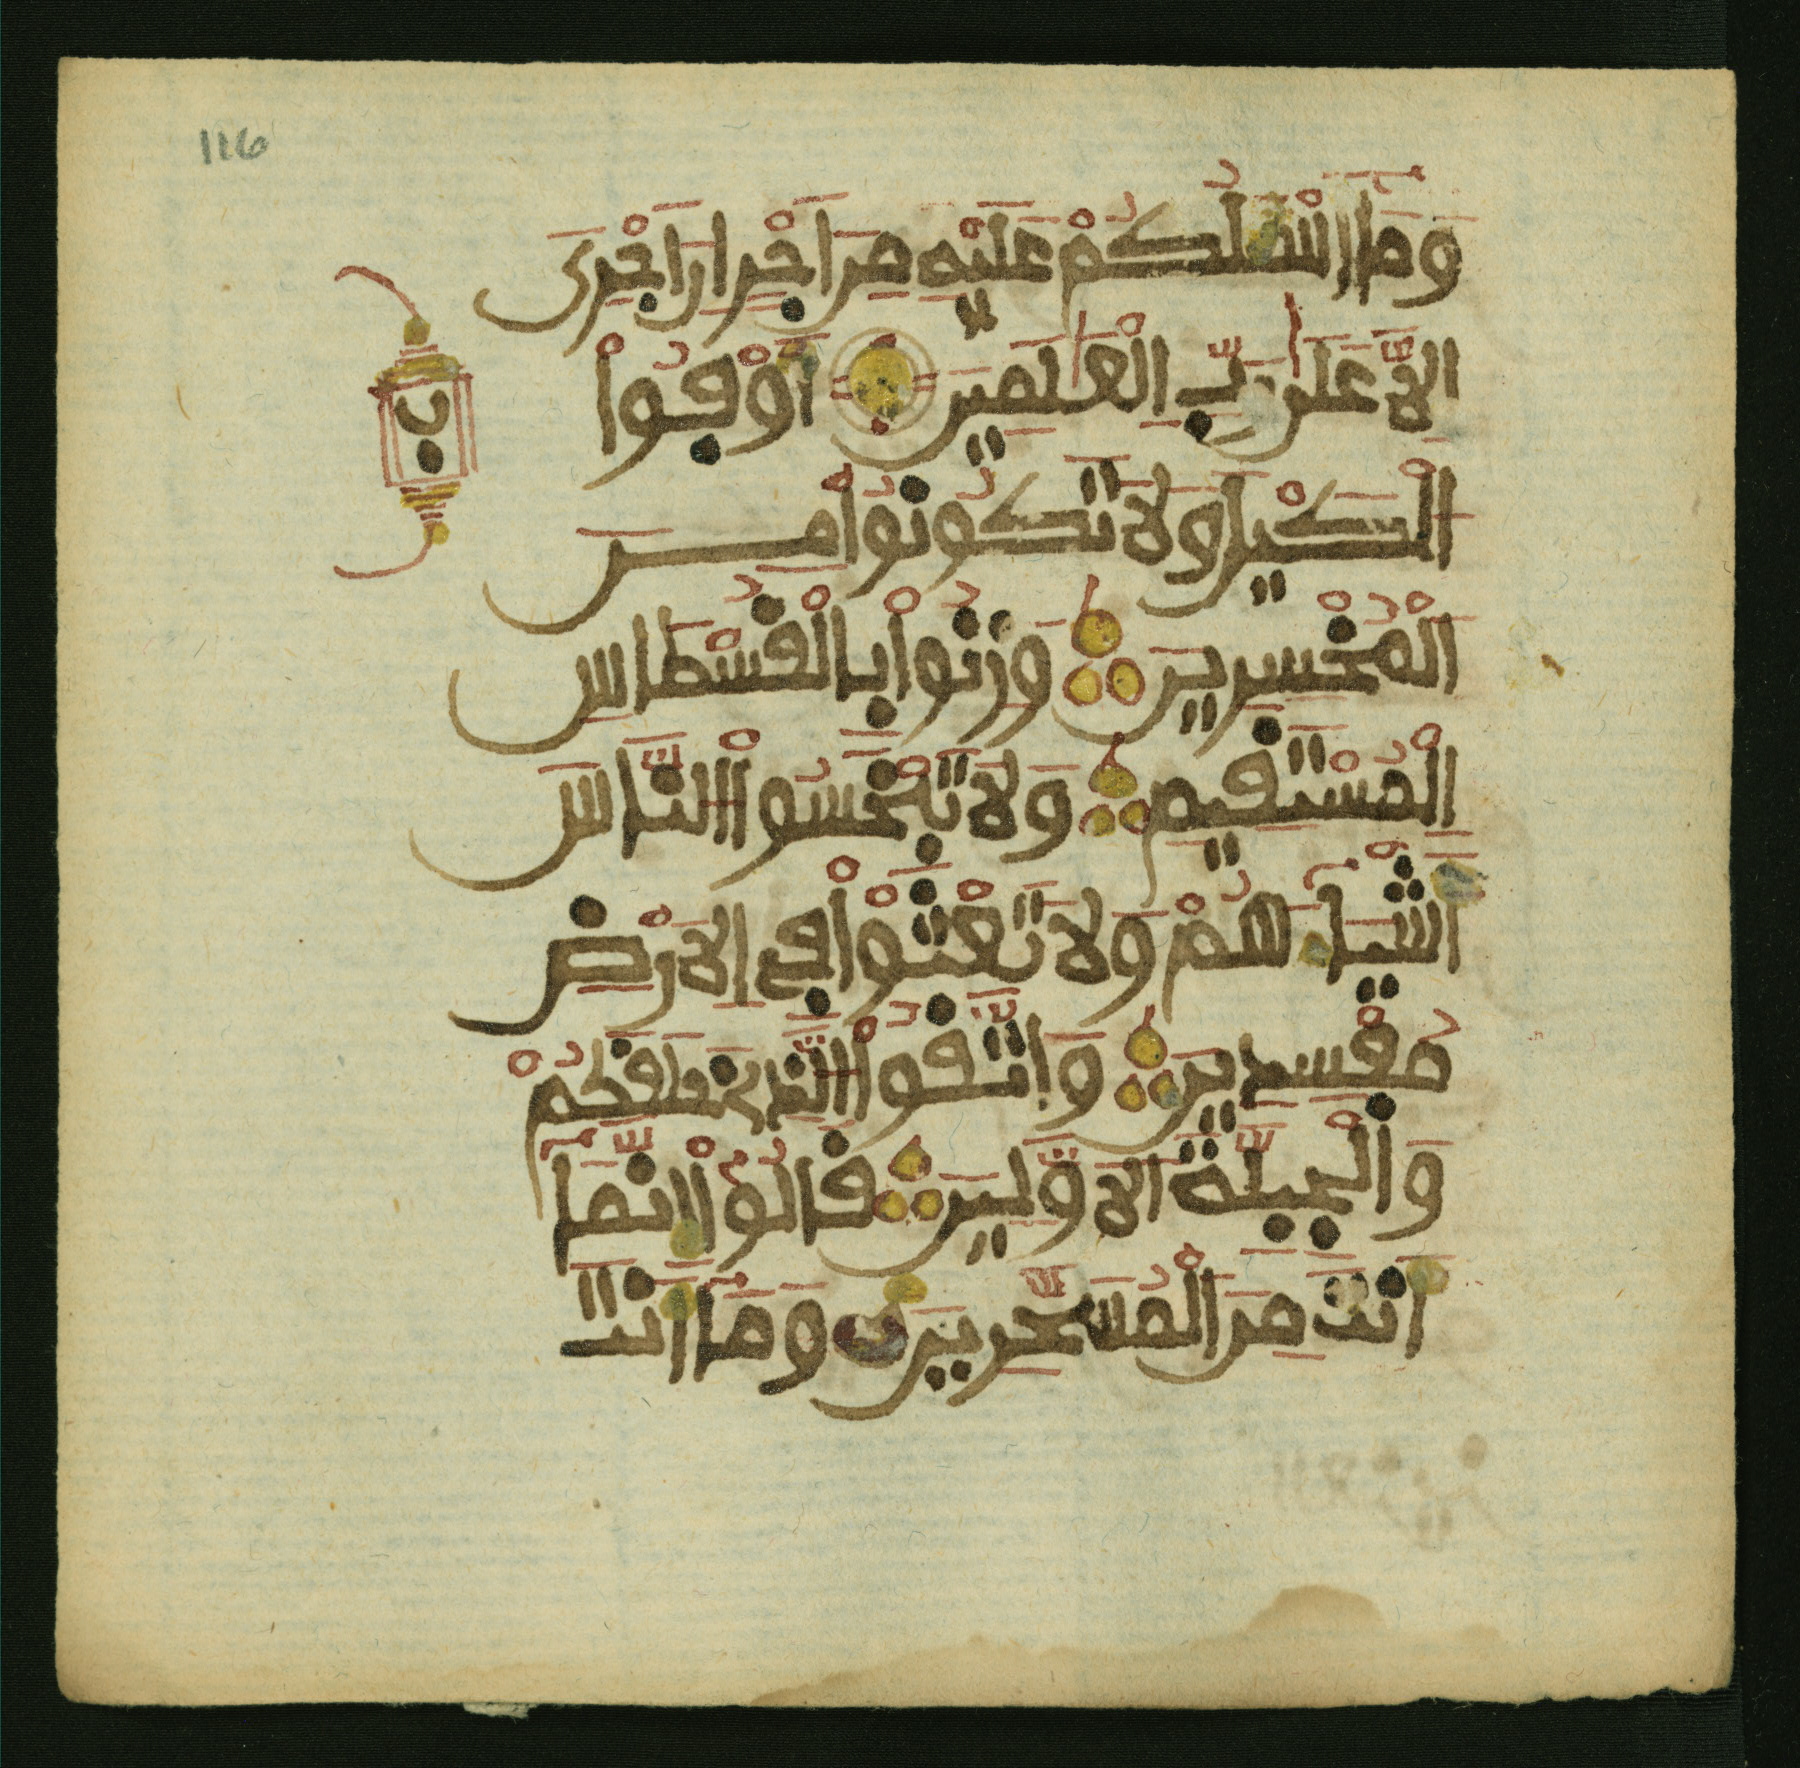 116
وَمَا أَسْـَٔلُكُمْ عَلَيْهِ مِنَ اجْرٍ انَ اجْرِىَ
إلَّا عَلَىٰ رَبِّ الْعَٰلَمِينَ أَوْفُوا
ب
الْكَيْلَ وَلَا تَكُونُواْ مِنَ
الْمُخْسِرِينَ وَزِنُواْ بِالْقُسْطَاسِ
الْمُسْتَقِيمِ وَلَا تَبْخَسُوا النَّاسَ
أَشْيَآءَهُمْ وَلَا تَعْثَوْاْ فِي الَارْضِ
مُفْسِدِينَ وَاتَّقُوا الَّذِي خَلَقَكُمْ
وَالْجِبِلَّةَ الَاوَّلِينَ قَالُوٓاْ إنَّمَآ
أَنتَ مِنَ الْمُسَحَّرِينَ وَمَآ أَنتَ